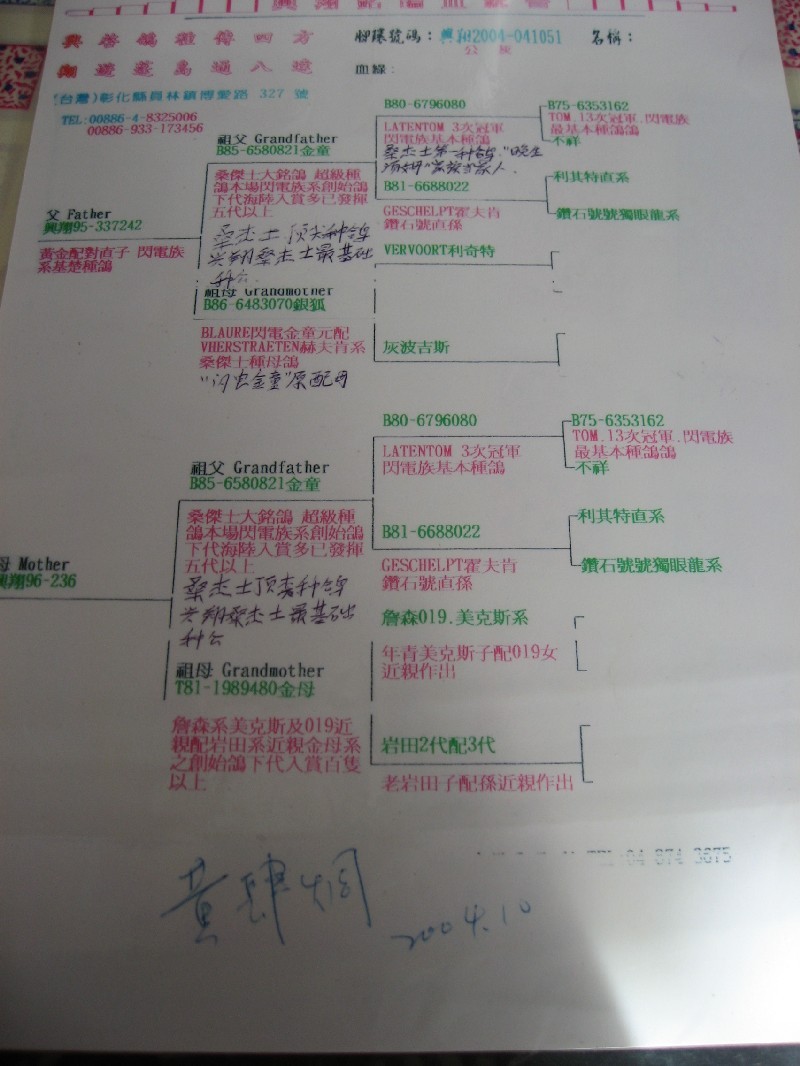 興翔鴿舍血統書
興啓鴿雄傳四方
腳環號碼：興翔2004-041051 名稱：
公 灰
翔遊臺島通八遠
血線：
(台灣)彰化縣員林鎮博愛路 327 號
TEL:00886-4-8325006
00886-933-173456
B80-6796080
B75-6353162
LATENTOM 3次冠軍
閃電族基本種鴿
TOM.13次冠軍.閃電族
最基本種鴿鴿
不祥
桑杰士第一种鸽,"晚生
祖父 Grandfather
B85-6580821金童
B81-6688022
利其特直系
桑傑士大銘鴿 超級種
鴿本場閃電族系創始鴿
下代海陸入賞多已發揮
五代以上
GESCHELPT霍夫肯
鑽石號直孫
鑽石號號獨眼龍系
父 Father
興翔95-337242
黃金配對直子 閃電族
系基楚種鴿
桑杰士顶尖种鸽
兴翔桑杰士最基础
种公.
VERVOORT利奇特
祖母 Grandmother
B86-6483070銀狐
BLAURE閃電金童元配
VHERSTRAETEN赫夫肯系
桑傑士種母鴿
"闪电金童"原配母
灰波吉斯
B80-6796080
B75-6353162
LATENTOM 3次冠軍
閃電族基本種鴿
TOM.13次冠軍.閃電族
最基本種鴿鴿
不祥
祖父 Grandfather
B85-6580821金童
桑傑士大銘鴿 超級種
鴿本場閃電族系創始鴿
下代海陸入賞多已發揮
五代以上
B81-6688022
利其特直系
GESCHELPT霍夫肯
鑽石號直孫
鑽石號號獨眼龍系
母 Mother
興翔96-236
桑杰士顶尖种鸽
兴翔桑杰士最基础
种公
詹森019.美克斯系
年青美克斯子配019女
近親作出
祖母 Grandmother
T81-1989480金母
詹森系美克斯及019近
親配岩田系近親金母系
之創始鴿下代入賞百隻
以上
岩田2代配3代
老岩田子配孫近親作出
TEL:04 874 3675
2004.10